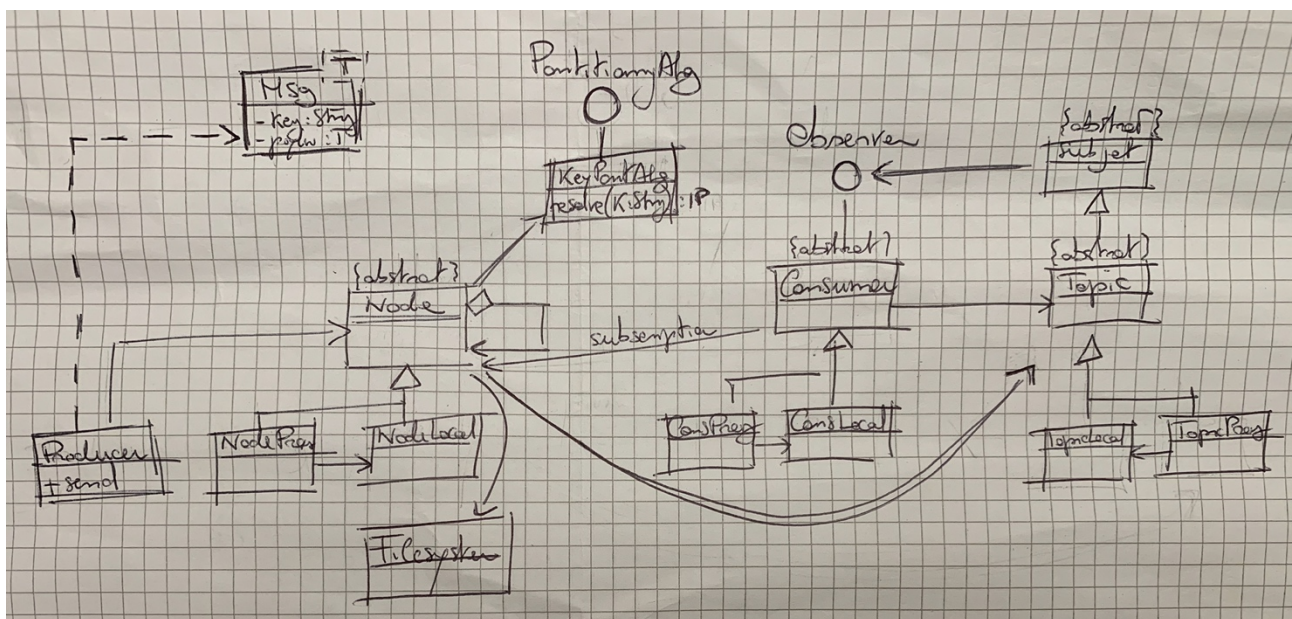 T
Msg
- Key: String
: T
PartitioningAlg
KeyPartAlg
resolve(K:String): IP
Observer
{abstract}
Subject
{abstract}
Node
{abstract}
Consumer
{abstract}
Topic
subscription
Producer
+ send
NodeProxy
NodeLocal
ConsProxy
ConsLocal
TopicLocal
TopicProxy
Filesystem